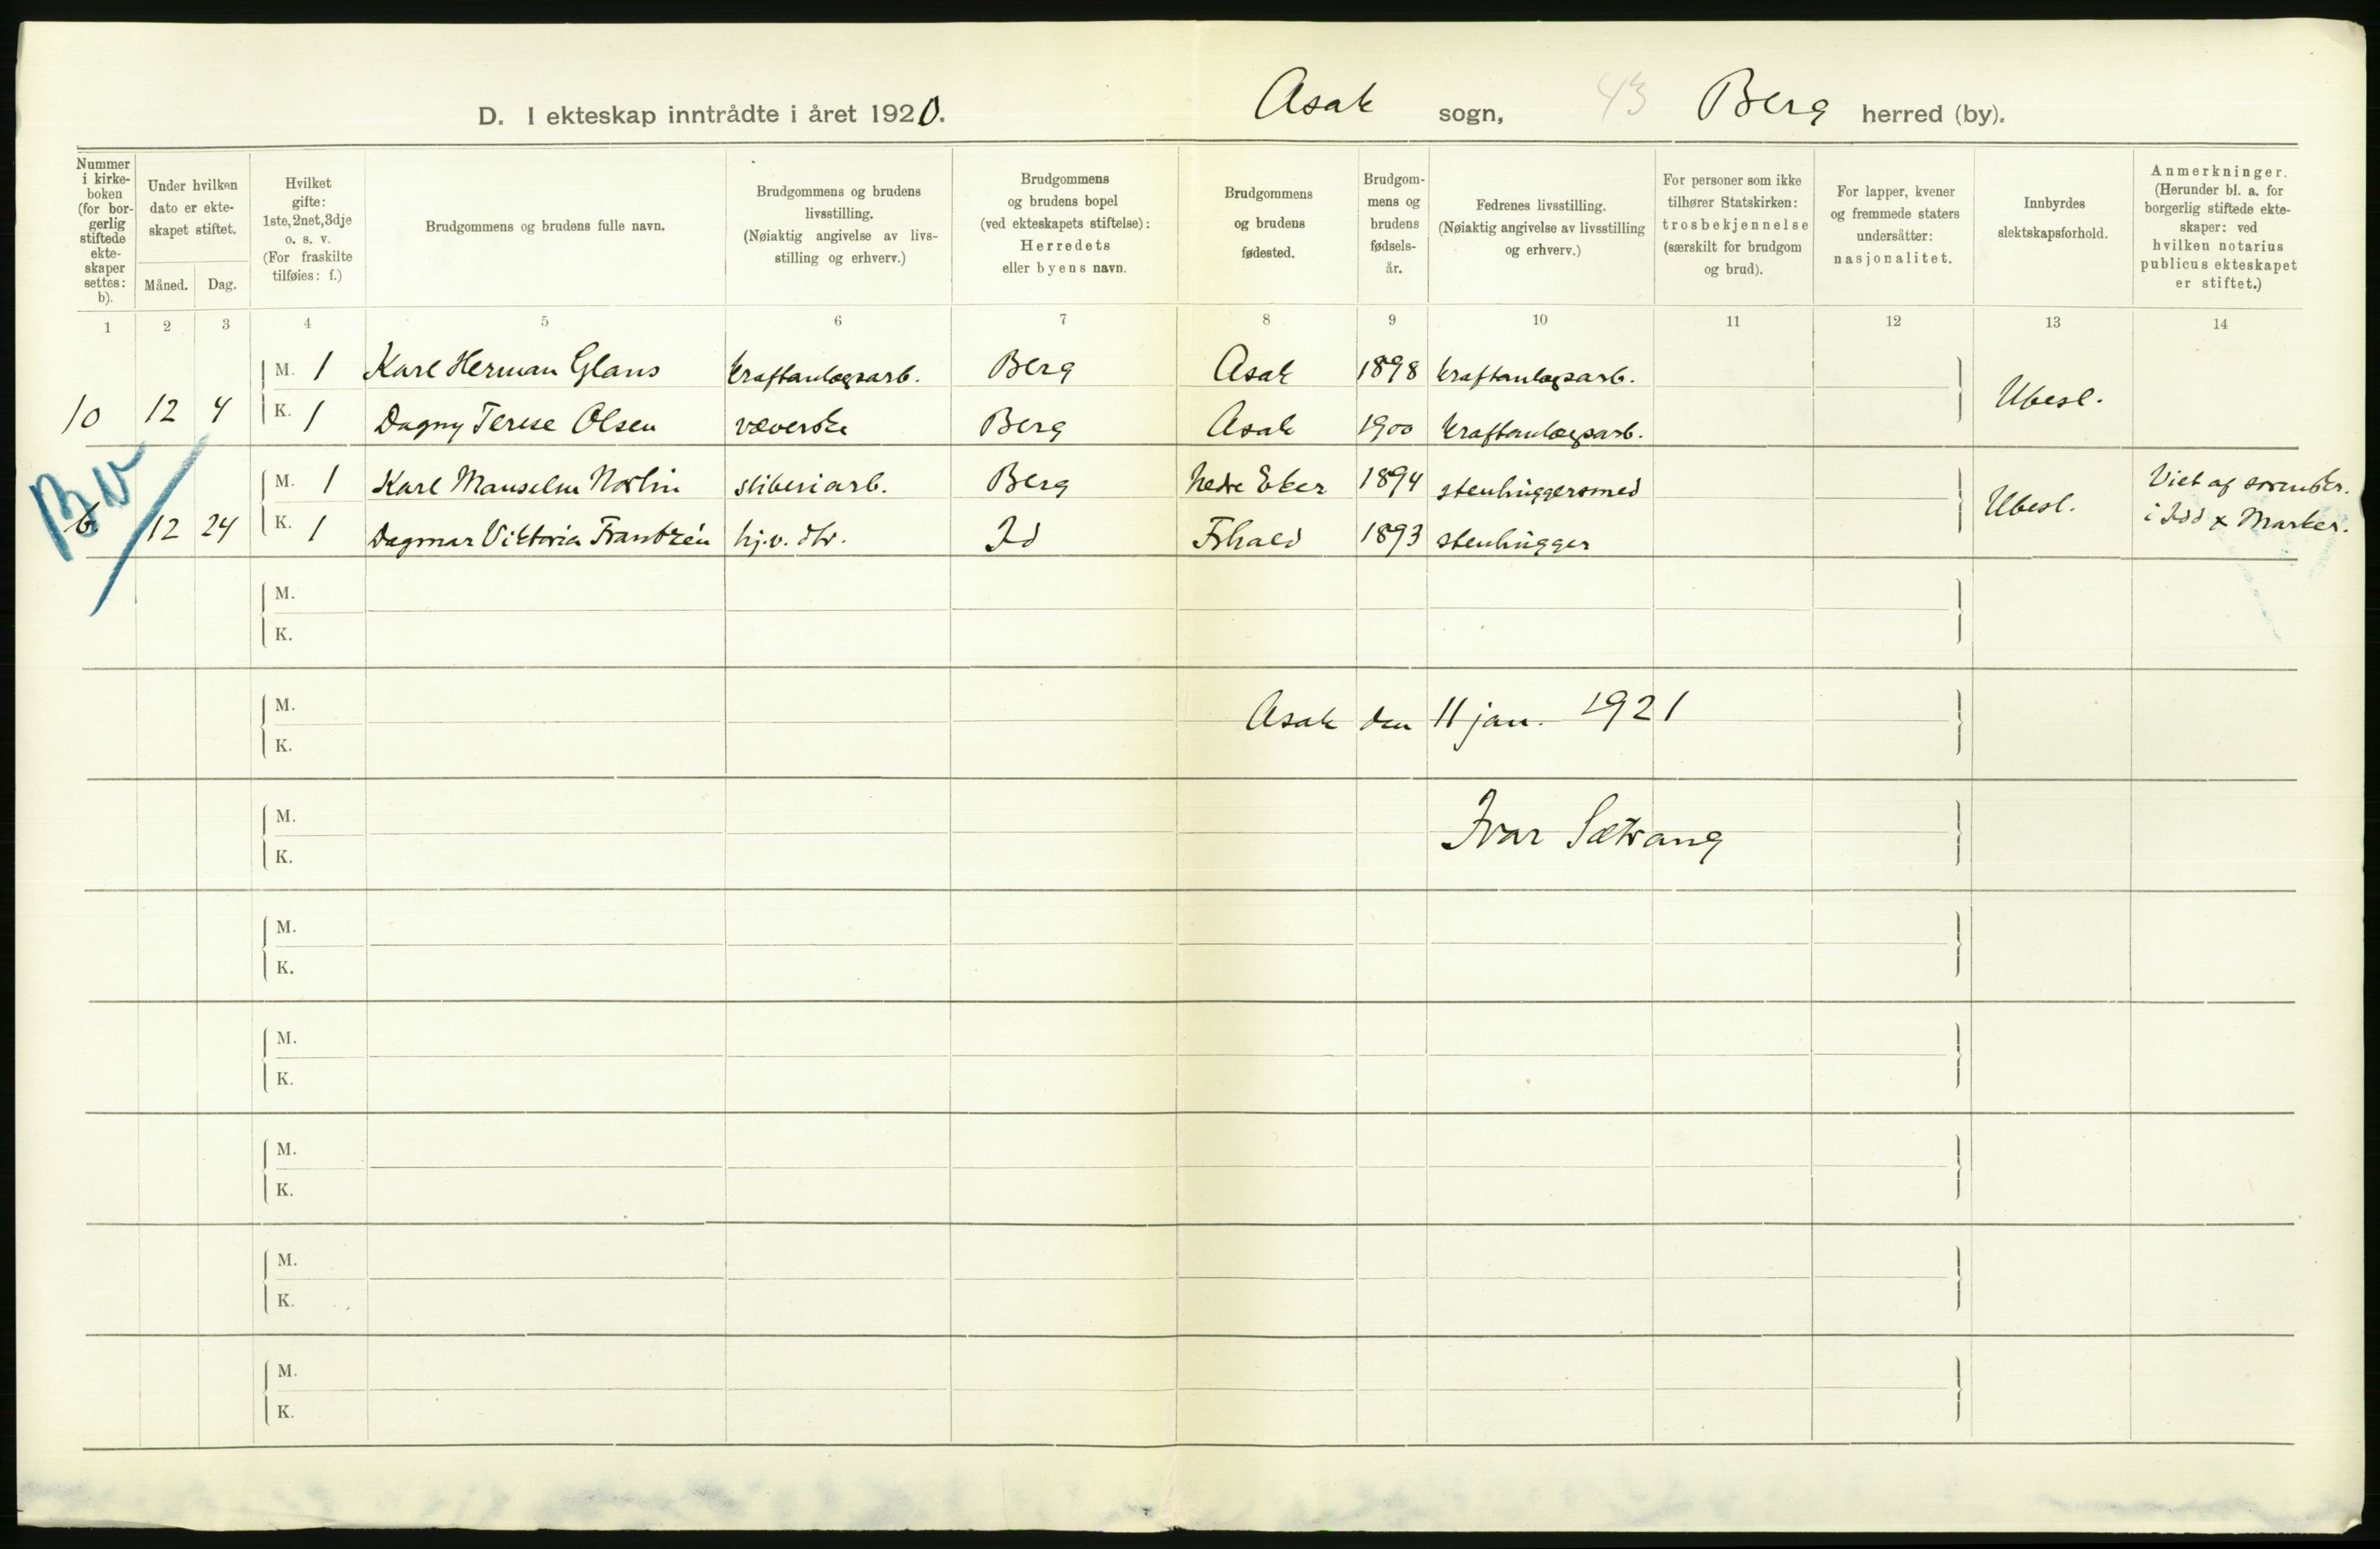 D. I ekteskap inntrådte i året 1920.
Asak sogn, 43 Berg herred (by).
Nummer i kirke-boken (for bor-gerlig stiftede ekte-skaper settes: b).
Under hvilken dato er ekte-skapet stiftet.
Måned. Dag.
Hvilket gifte: 1ste, 2net, 3dje o. s. v. (For fraskilte tilføies: f.)
Brudgommens og brudens fulle navn.
Brudgommens og brudens livsstilling. (Nøiaktig angivelse av livs-stilling og erhverv.)
Brudgommens og brudens bopel (ved ekteskapets stiftelse): Herredets eller byens navn.
Brudgommens og brudens fødested.
Brudgom-mens og brudens fødsels-år.
Fedrenes livsstilling. (Nøiaktig angivelse av livsstilling og erhverv.)
For personer som ikke tilhører Statskirken: trosbekjennelse (særskilt for brudgom og brud).
For lapper, kvener og fremmede staters undersåtter: nasjonalitet.
Innbyrdes slektskapsforhold.
Anmerkninger. (Herunder bl. a. for borgerlig stiftede ekte-skaper: ved hvilken notarius publicus ekteskapet er stiftet.)
1 2 3 4 5 6 7 8 9 10 11 12 13 14
M. 1 Karl Herman Glans kraftanlægsarb. Berg Asak 1898 kraftanlægsarb.
10 12 4 K. 1 Dagny Terese Olsen væverske Berg Asak 1900 kraftanlægsarb. Ubesl.
M. 1 Karl Manselm Norlin sliberiarb. Berg Nedre Eker 1894 stenhuggersmed Viet af sorenskr.
b 12 24 K. 1 Dagmar Viktoria Frantzén hj.v. dtr. Id Fshald 1893 stenhugger Ubesl. i Idd & Marker.
M.
K.
M.
Asak den 11 jan. 1921
K.
M.
Ivar Sætrang
K.
M.
K.
M.
K.
M.
K.
M.
K.
M.
K.